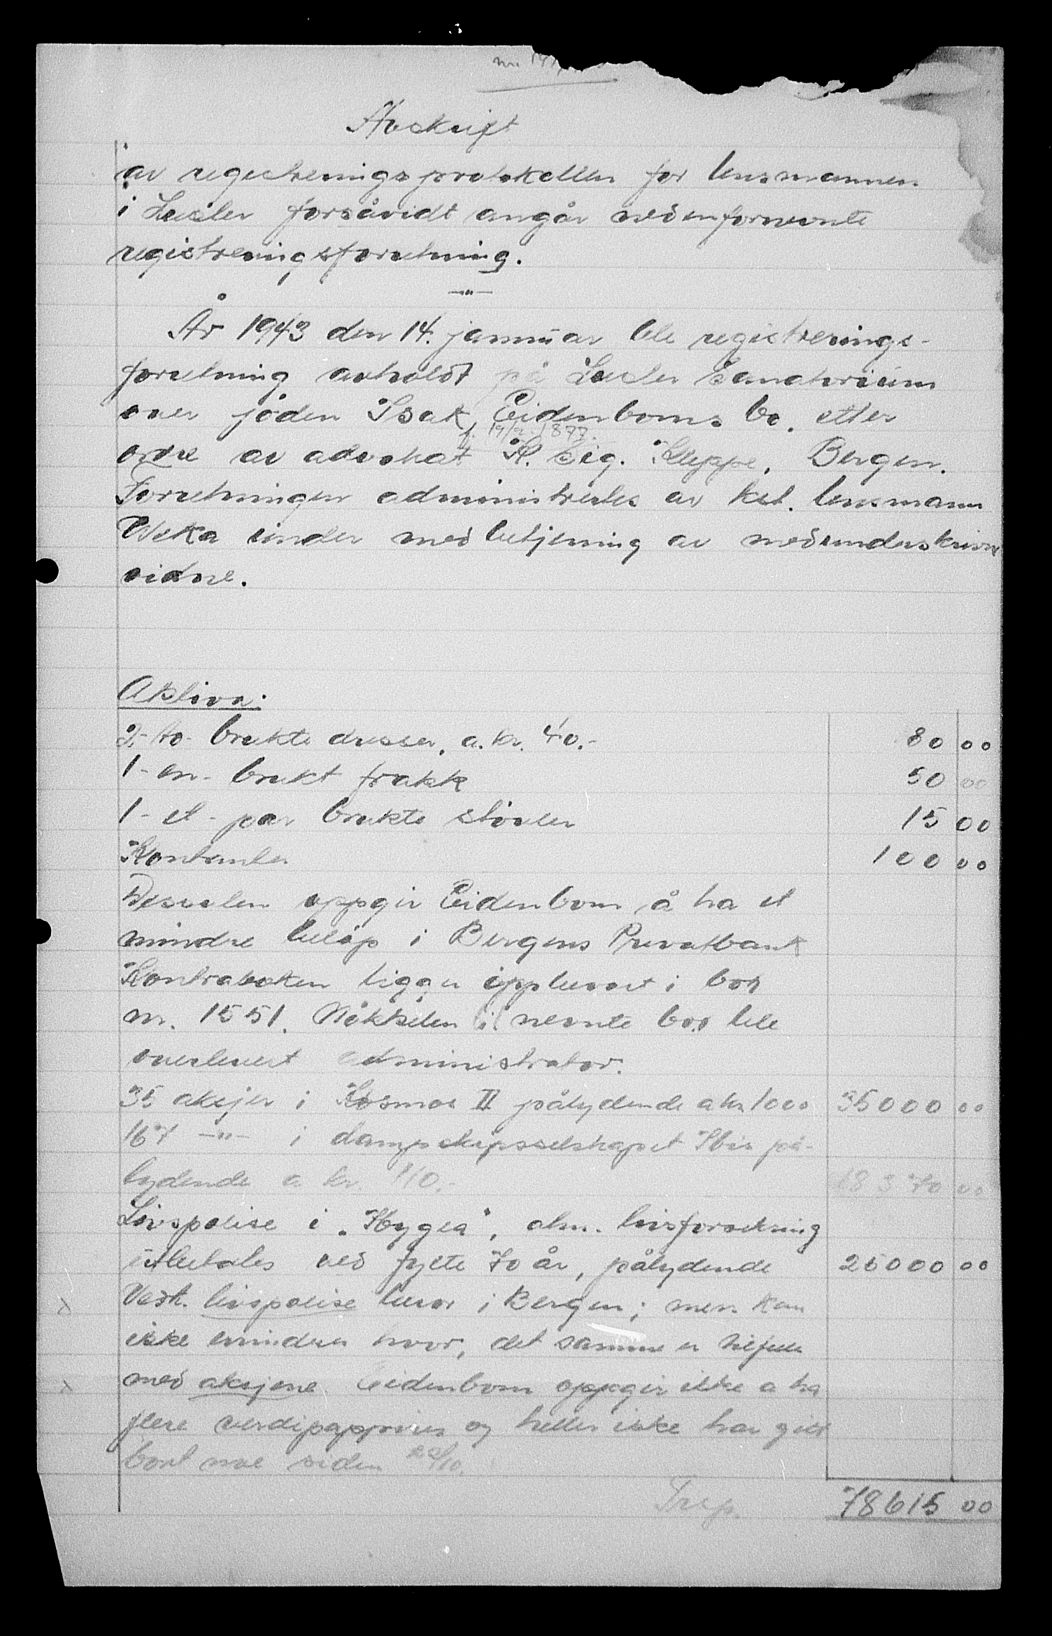 Avskrift
av registreringsprotokollen for lensmannen
i Luster forsåvidt angår nedenfornevnte
registreringsforretning.
—"—
År 1943 den 14. januar ble registrerings-
forretning avholdt på Luster Sanatorium
over jöden Isak Eidenboms bo. etter
f. 19/2 1877.
ordre av advokat K. Sig. Kleppe, Bergen.
Forretningen administrertes av kst. lensmann
under med betjening av medunderskrivne
vidne.
Aktiva:
2,- to- brukte dresser, a. kr. 40.- 80 00
1- en- brukt frakk 50 00
1- et- par brukte stövler 15 00
Kontanter 100 00
Dessuten oppgir Eidenbom å ha et
mindre belöp i Bergens Privatbank
Kontraboken ligger oppbevart i box
nr. 1551. Nökkelen til nevnte box ble
overlevert administrator.
35 aksjer i Kosmos II pålydende a kr 1000 35000 00
167 —"— i dampskipsselskapet Ibis på-
lydende a kr. 110.- 18370 00
Livspolise i "Hygea", alm. livsforsikring
utbetales ved fylte 70 år, pålydende 25000 00
Vedk. livspolise beror i Bergen; men kan
ikke erindre hvor, det samme er tilfelle
med aksjene Eidenbom oppgir ikke a ha
flere verdipapirer og heller ikke har gitt
bort noe siden 22/10.
Transp. 78615 00